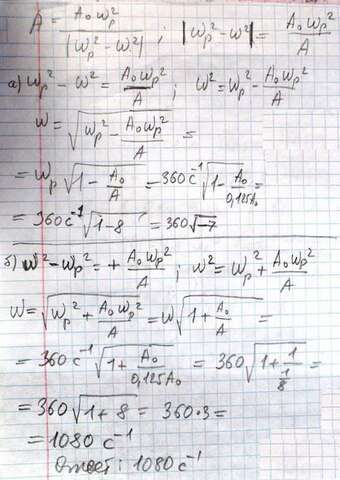 A = A₀ωp² / |ωp² - ω²| ; |ωp² - ω²| = A₀ωp² / A
а) ωp² - ω² = A₀ωp² / A ; ω² = ωp² - A₀ωp² / A
ω = √(ωp² - A₀ωp² / A) =
= ωp √(1 - A₀ / A) = 360 c⁻¹ √(1 - A₀ / 0,125A₀) =
= 360 c⁻¹ √(1 - 8) = 360 √-7
б) ω² - ωp² = + A₀ωp² / A ; ω² = ωp² + A₀ωp² / A
ω = √(ωp² + A₀ωp² / A) = ω √(1 + A₀ / A) =
= 360 c⁻¹ √(1 + A₀ / 0,125A₀) = 360 √(1 + 1 / (1 / 8)) =
= 360 √(1 + 8) = 360 · 3 =
= 1080 c⁻¹
Ответ: 1080 c⁻¹